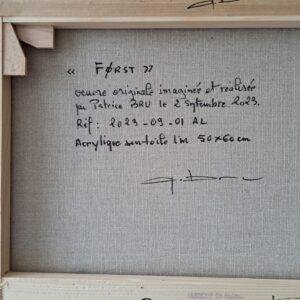 « FØRST »
oeuvre originale imaginée et réalisée
par Patrice BRU le 2 septembre 2023.
Réf : 2023-09-01 AL
Acrylique sur toile lin 50x60cm